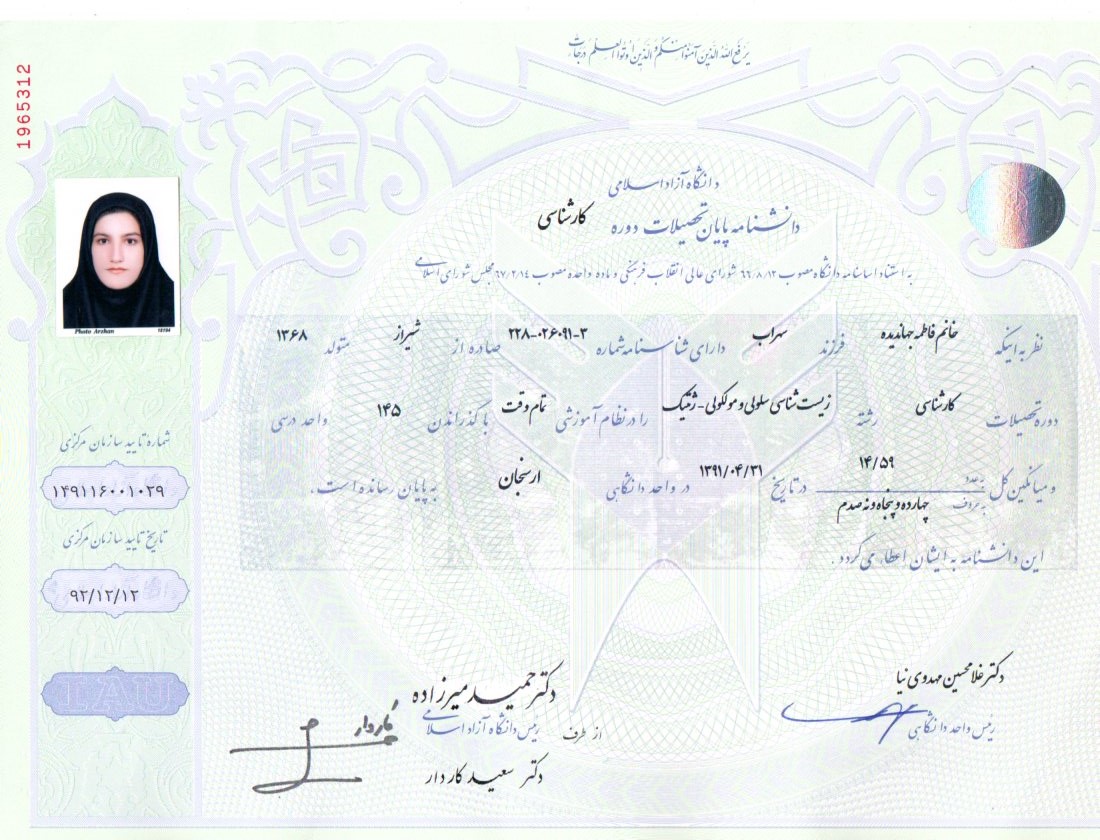 یرفع الله الذین آمنوا منکم و الذین اوتوا العلم درجات
1965312
دانشگاه آزاد اسلامی
دانشنامه پایان تحصیلات دوره کارشناسی
به استناد اساسنامه دانشگاه مصوب ۶۶/۸/۱۲ شورای عالی انقلاب فرهنگی و ماده واحده مصوب ۶۷/۲/۱۴ مجلس شورای اسلامی
نظر به اینکه خانم فاطمه جهاندیده فرزند سهراب دارای شناسنامه شماره ۲۲۸-۰۲۶۰۹۱-۳ صادره از شیراز متولد ۱۳۶۸
دوره تحصیلات کارشناسی رشته زیست شناسی سلولی و مولکولی - ژنتیک را در نظام آموزشی تمام وقت با گذراندن ۱۴۵ واحد درسی
و میانگین کل به عدد ۱۴/۵۹ به حروف چهارده و پنجاه و نه صدم در تاریخ ۱۳۹۱/۰۴/۳۱ در واحد دانشگاهی ارسنجان به پایان رسانده است.
این دانشنامه به ایشان اعطا می گردد.
Photo Arzhan
شماره تایید سازمان مرکزی
۱۴۹۱۱۶۰۰۱۰۲۹
تاریخ تایید سازمان مرکزی
۹۲/۱۲/۱۲
IAU
دکتر غلامحسین مهدوی نیا
رئیس واحد دانشگاهی
دکتر حمید میرزاده
از طرف رئیس دانشگاه آزاد اسلامی
کاردار
دکتر سعید کاردار